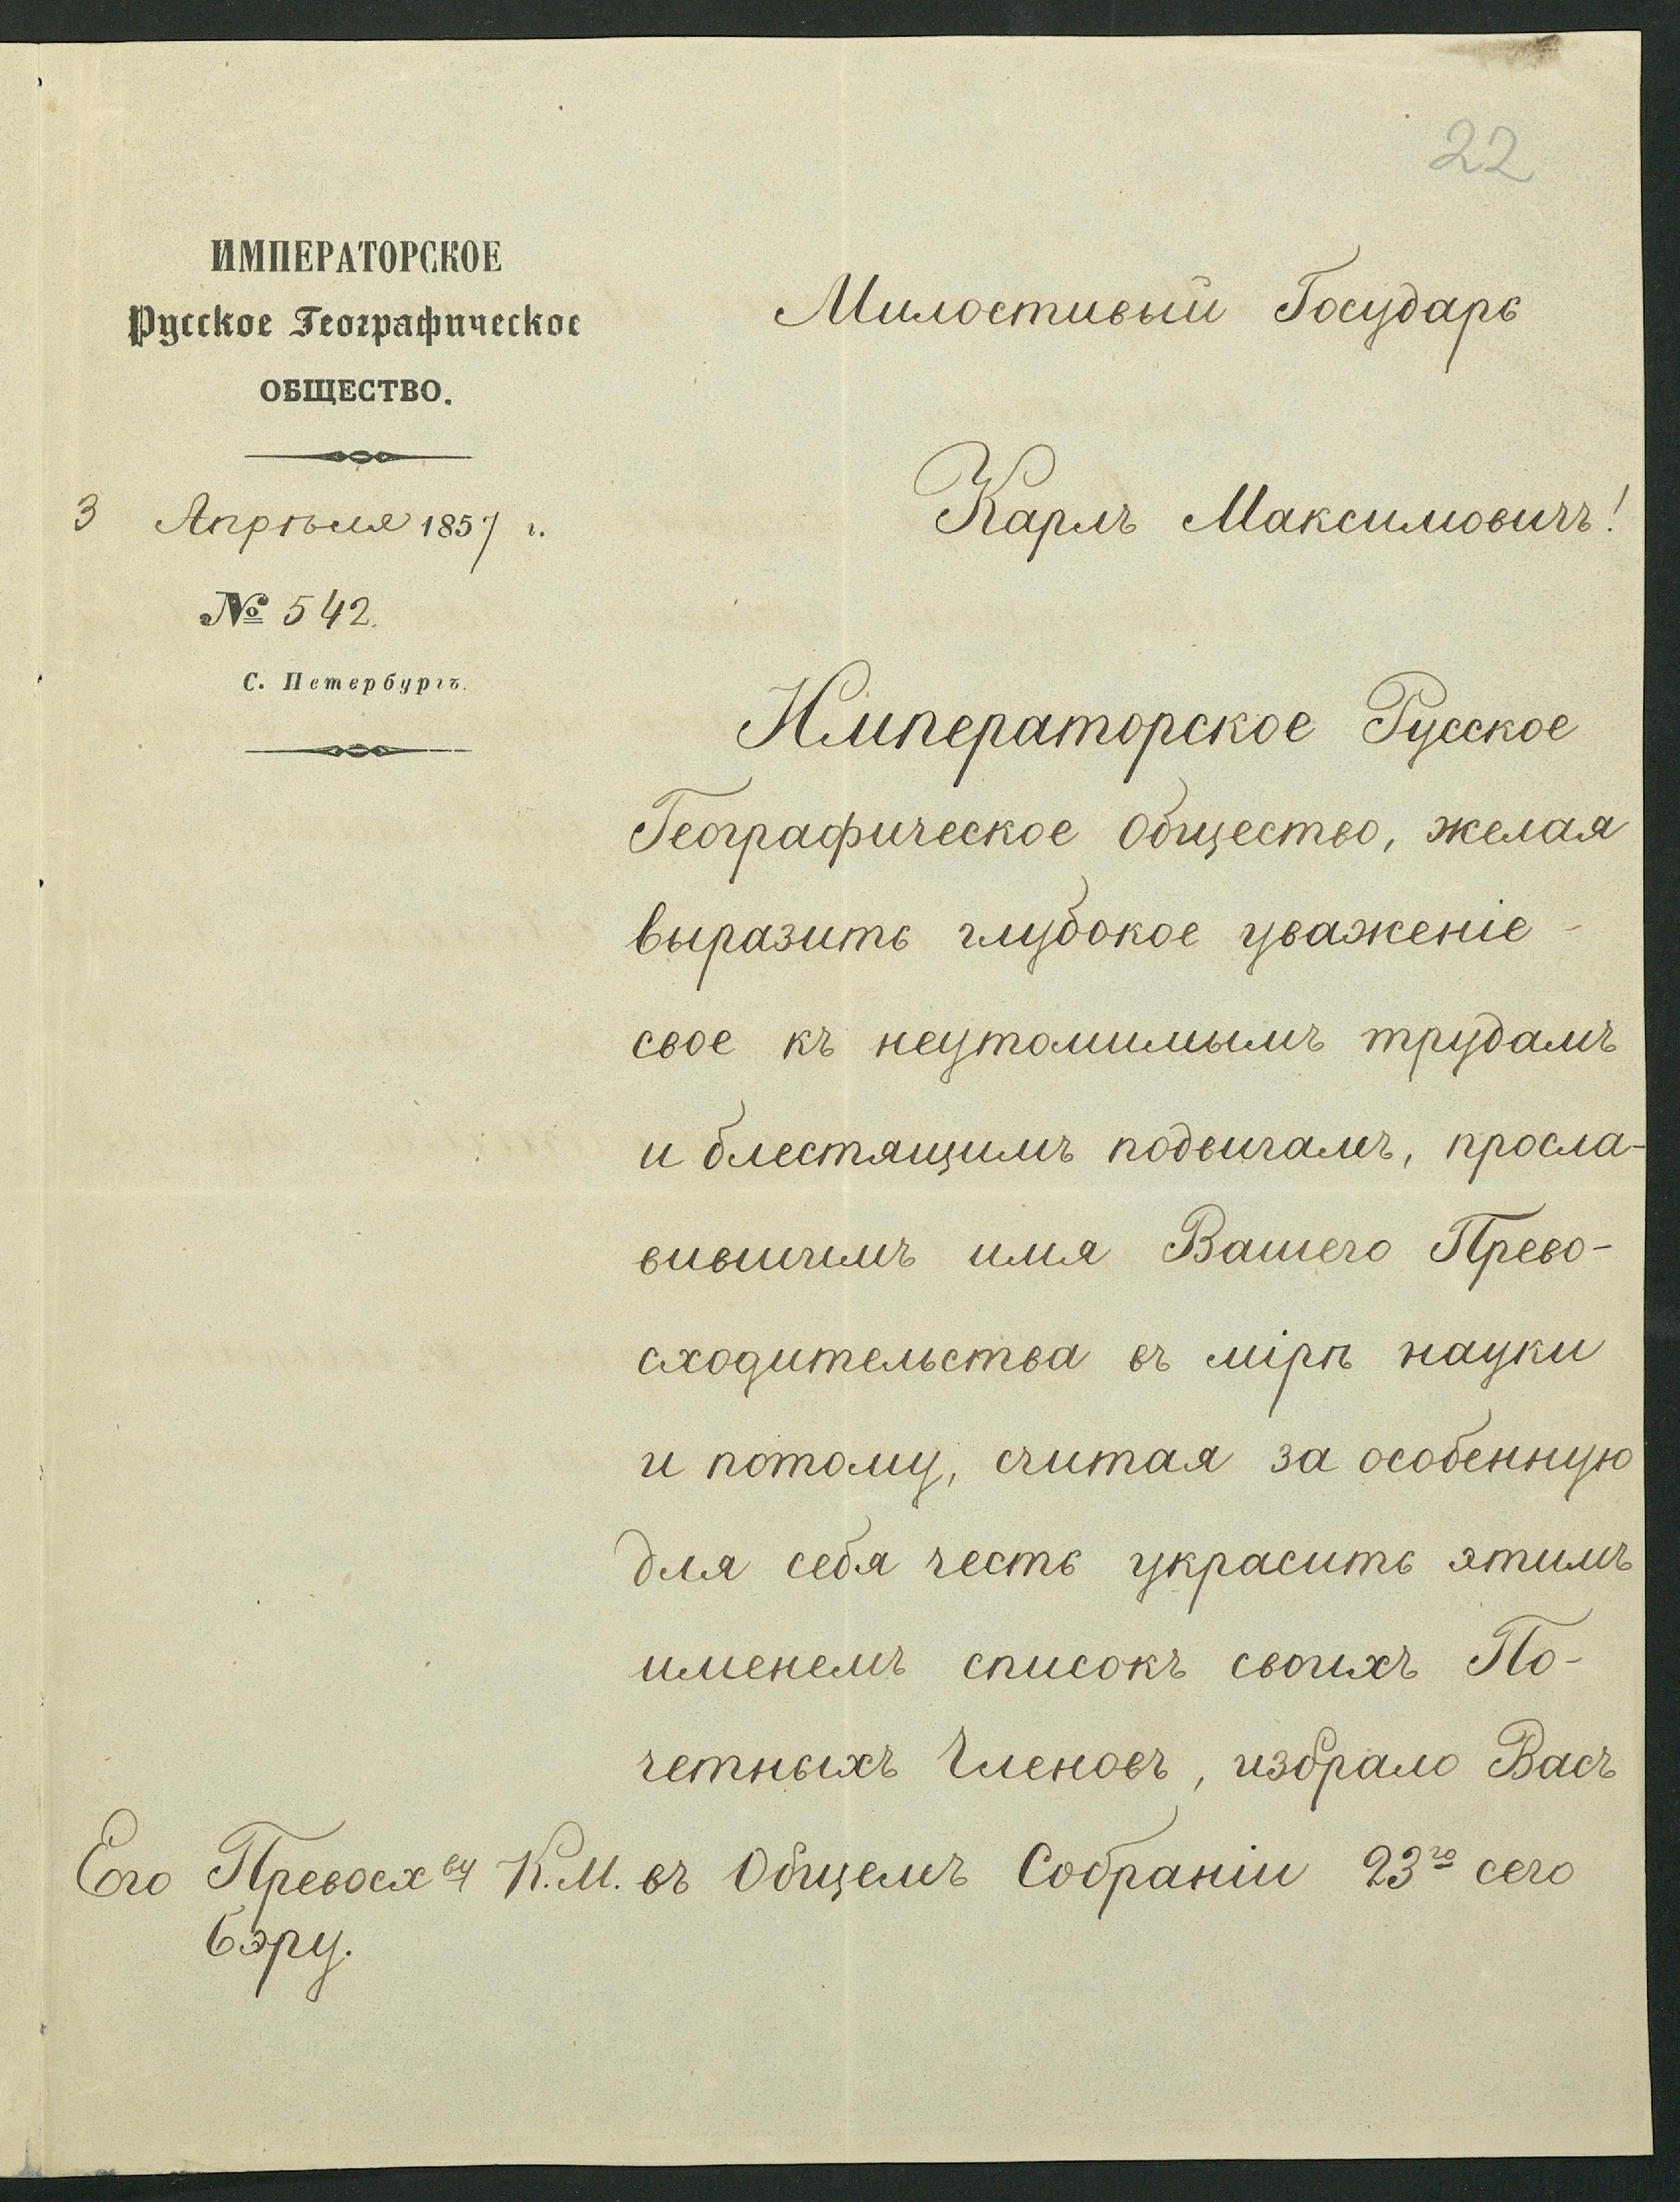 22
ИМПЕРАТОРСКОЕ
Русское Географическое
ОБЩЕСТВО.
3 Апрѣля 1857 г.
№ 542.
С. Петербургъ.
Милостивый Государь
Карлъ Максимовичъ!
Императорское Русское
Географическое Общество, желая
выразить глубокое уваженіе
свое къ неутомимымъ трудамъ
и блестящимъ подвигамъ, просла-
вившимъ имя Вашего Прево-
сходительства въ мірѣ науки
и потому, считая за особенную
для себя честь украсить этимъ
именемъ списокъ своихъ По-
четныхъ Членовъ, избрало Васъ
въ Общемъ Собраніи 23го сего
Его Превосхву К.М.
Бэру.